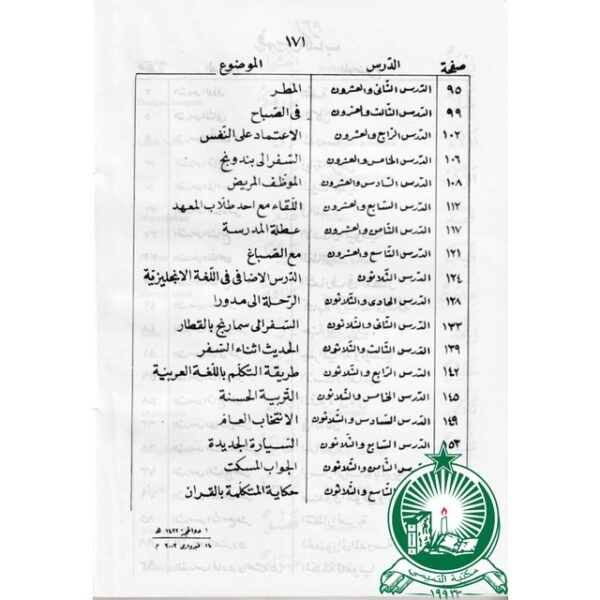 ١٧١
صفحة الدّرس الموضوع
٩٥ الدّرس الثّانى والعشرون المطر
٩٩ الدّرس الثّالث والعشرون فى الصّباح
١٠٢ الدّرس الرّابع والعشرون الاعتماد على النّفس
١٠٦ الدّرس الخامس والعشرون السّفر الى بندونج
١٠٨ الدّرس السّادس والعشرون الموظّف المريض
١١٢ الدّرس السّابع والعشرون اللّقاء مع احد طلاّب المعهد
١١٧ الدّرس الثّامن والعشرون عطلة المدرسة
١٢١ الدّرس التّاسع والعشرون مع الصّباغ
١٢٤ الدّرس الثّلاثون الدّرس الاضافى فى اللّغة الانجليزيّة
١٢٨ الدّرس الحادى والثّلاثون الرّحلة الى مدورا
١٣٣ الدّرس الثّانى والثّلاثون السّفر الى سمارنج بالقطار
١٣٩ الدّرس الثّالث والثّلاثون الحديث اثناء السّفر
١٤٢ الدّرس الرّابع والثّلاثون طريقة التكلّم باللّغة العربيّة
١٤٥ الدّرس الخامس والثّلاثون التّربية الحسنة
١٤٩ الدّرس السّادس والثّلاثون الانتخاب العامّ
١٥٣ الدّرس السّابع والثّلاثون السّيارة الجديدة
الدّرس الثّامن والثّلاثون الجواب المسكت
التّاسع والثّلاثون حكاية المتكلّمة بالقران
١ ذوالحجة ١٤٢٢ هـ
١٤ فبرواري ٢٠٠٢ م
مكتبة التميمي
١٩٩٣